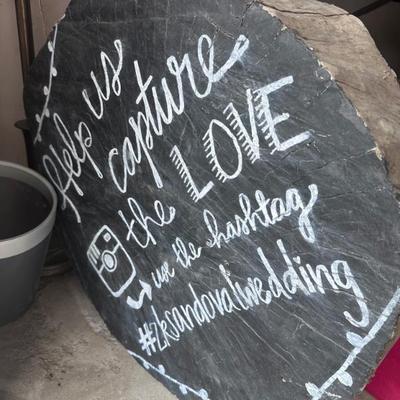 Help us
capture
the LOVE
use the hashtag
#zksandovalwedding